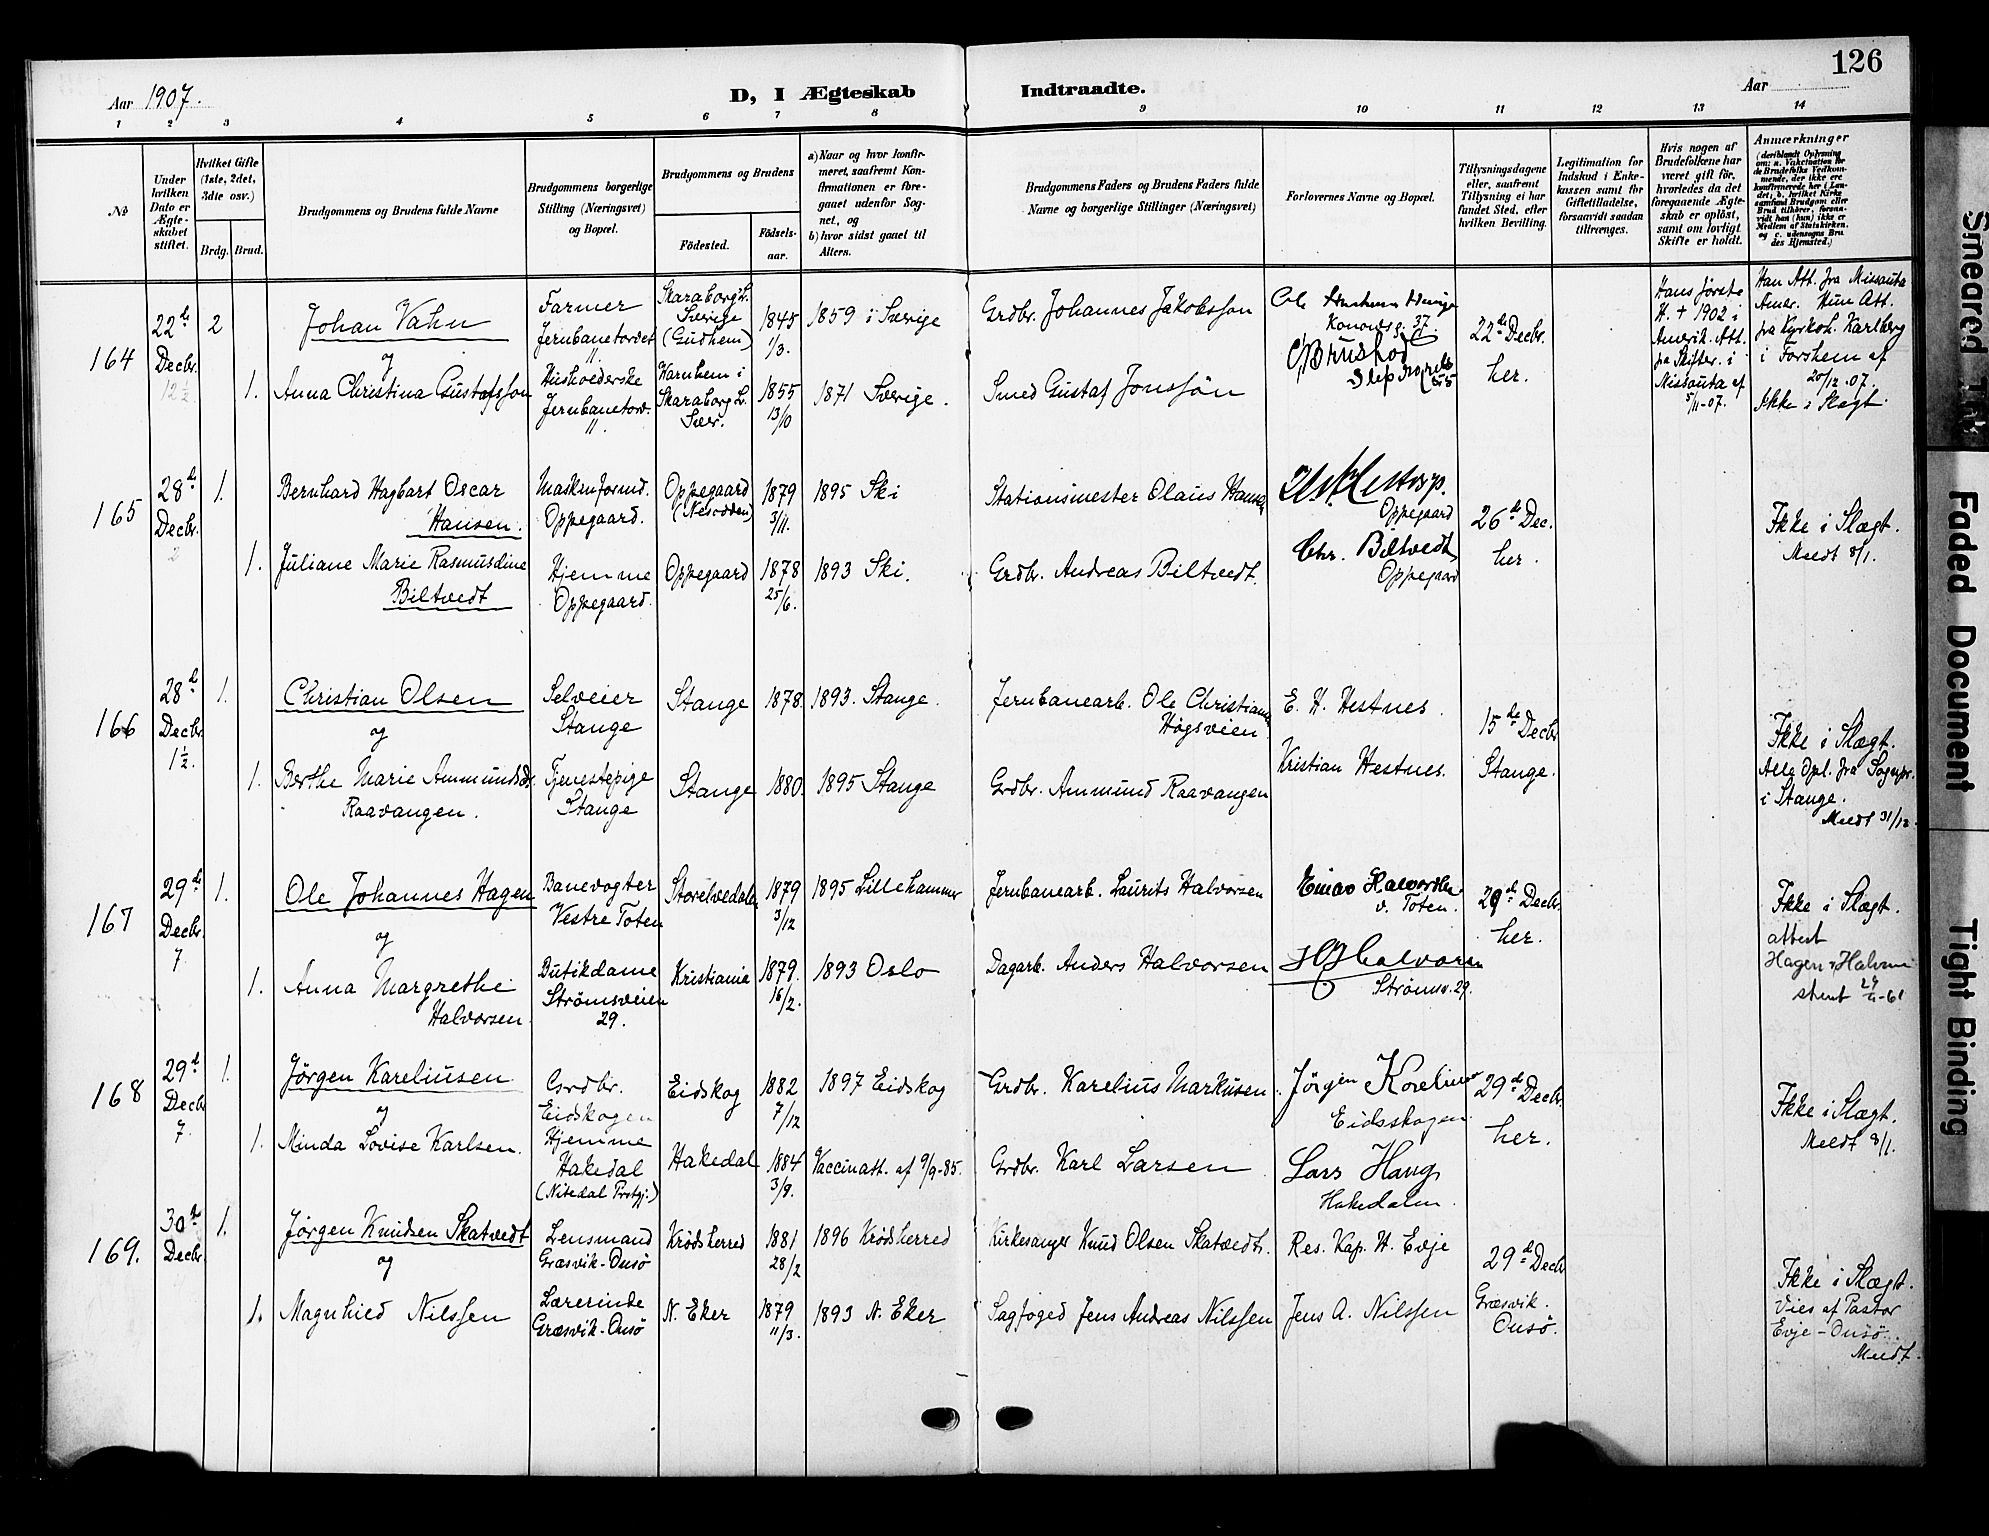 126
Aar 1907.
D, I Ægteskab Indtraadte.
Aar
1 2 3 4 5 6 7 8 9 10 11 12 13 14
No
Under hvilken Dato er Ægteskabet stiftet.
Hvilket Gifte (1ste, 2det, 3die osv.)
Brdg. Brud.
Brudgommens og Brudens fulde Navne
Brudgommens borgerlige Stilling (Næringsvei) og Bopæl.
Brudgommens og Brudens
Fødested. Fødselsaar.
a) Naar og hvor konfirmeret, saafremt Konfirmationen er foregaaet udenfor Sognet, og
b) hvor sidst gaaet til Alters.
Brudgommens Faders og Brudens Faders fulde Navne og borgerlige Stillinger (Næringsvei)
Forlovernes Navne og Bopæl.
Tillysningsdagene eller, saafremt Tillysning ei har fundet Sted, efter hvilken Bevilling.
Legitimation for Indskud i Enkekassen samt for Giftetilladelse, forsaavidt saadan tiltrænges.
Hvis nogen af Brudefolkene har været gift før, hvorledes da det foregaaende Ægteskab er opløst, samt om lovligt Skifte er holdt.
Anmærkninger
164
22de Decbr. 12½
2
Johan Vahn
og
Farmer
Jernbanetorvet
11.
Skaraborg L.
Sverige
(Gudhem)
1845
1/3.
1859 i Sverige
Grdbr. Johannes Jakobsson
37.
22de Decbr.
her.
Hans første
H. + 1902 i
Amerik. Att.
fra Skifter. i
Missouta af
5/11-07.
Han Att. fra Missouta
Amer. Hun Att.
fra Kyrkoh. Karlberg
i Forshem af
20/12-07.
Ikke i Slægt.
1.
Anna Christina Gustafsson
Husholderske
Jernbanetorv.
11.
Karnhem i
Skaraborg L.
Sver.
1855
13/10
1871 Sverige.
Smed Gustaf Jonssön
165
28de Decbr. 2
1.
Bernhard Hagbart Oscar
Hansen.
Maskinformd.
Oppegaard.
Oppegaard
(Nesodden)
1879
3/11.
1895 Ski
Stationsmester Olaus Hansen
Oppegaard
26de Dec.
her.
Ikke i Slægt.
Meldt 8/1.
1.
Juliane Marie Rasmusdine
Biltvedt
Hjemme
Oppegaard.
Oppegaard
1878
25/6.
1893 Ski.
Grdbr. Andreas Biltvedt.
Chr. Biltvedt
Oppegaard
166
28de Decbr. 1½.
1.
Christian Olsen
og
Selveier
Stange
Stange
1878.
1893. Stange.
Jernbanearb. Ole Christians
Høgsveien
E. H. Hestnes.
15de Decbr
Stange.
Ikke i Slægt.
Alle Opl. fra Sogepr.
i Stange.
Meldt 31/12
1.
Berthe Marie Ammundsdr.
Raavangen.
Tjenestepige
Stange
Stange
1880.
1895 Stange
Grdbr. Ammund Raavangen
Kristian Hestnes.
167
29de Decbr. 7.
1.
Ole Johannes Hagen
og
Banevogter
Vestre Toten
Storelvedalen
1879
3/12
1895 Lillehammer
Jernbanearb. Laurits Halvorsen
Einar Halvorsen
v. Toten.
29de Decbr.
her.
Ikke i Slægt.
attest
Hagen
1.
Anna Margrethe
Halvorsen.
Butikdame
Strømsveien
29.
Kristiania
1879.
16/2.
1893 Oslo
Dagarb. Anders Halvorsen
Strømsv. 29.
168
29de Decbr 7.
1.
Jørgen Kareliusen
og
Grdbr.
Eidskogen
Eidskog
1882
7/12
1897 Eidskog
Grdbr. Karelius Markusen
Jørgen Korelius
Eidsskogen
29de Decbr.
her.
Ikke i Slægt.
Meldt 8/1.
1.
Minda Lovise Karlsen.
Hjemme
Hakedal
(Nitedal Prstgj.)
Hakedal
1884
3/9.
Vaccinatt. af 9/9-85.
Grdbr. Karl Larsen
Lars Haug
Hakedalen.
169.
30te Decbr.
1.
Jørgen Knudsen Skatvedt
og
Lensmand
Græsvik-Onsö
Krødsherred
1881
28/2
1896 Krødsherred
Kirkesanger Knud Olsen Skatvedt.
Res. Kap. H. Evje
29de Decbr
Græsvik.
Onsö.
Ikke i Slægt.
Vies af Pastor
Evje-Onsö.
Meldt.
1.
Magnhild Nilssen
Lærerinde
Græsvik-Onsö
N. Eker
1879
11/3.
1893 N. Eker
Sagfoged Jens Andreas Nilssen
Jens A. Nilssen
Smeared Ink
Faded Document
Tight Binding